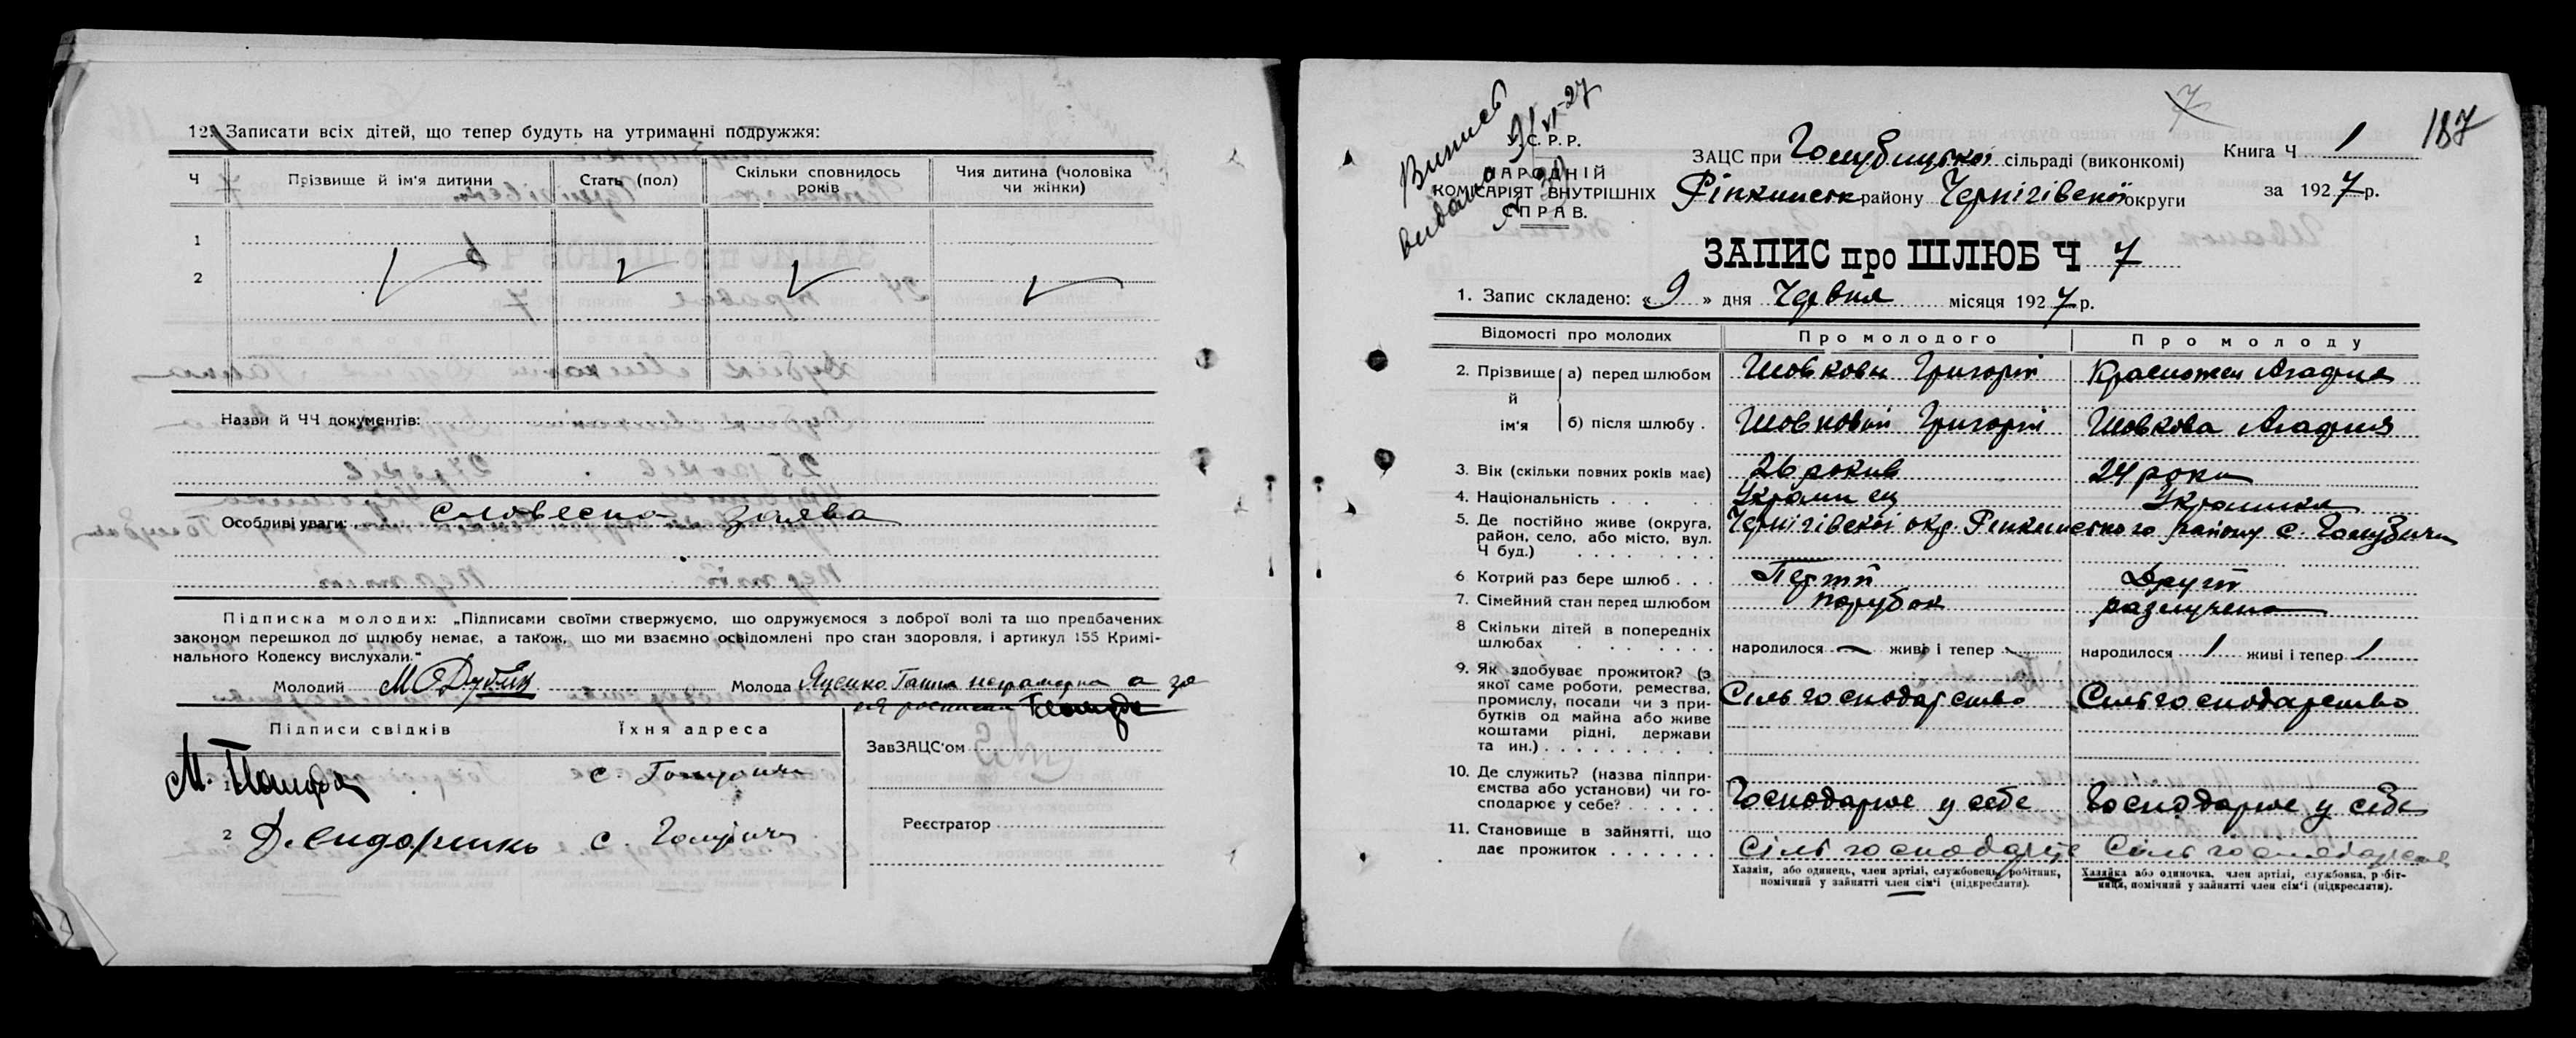 12. Записати всіх дітей, що тепер будуть на утриманні подружжя:
Ч Прізвище й ім'я дитини Стать (пол) Скільки сповнилось років Чия дитина (чоловіка чи жінки)
1
2
Назви й ЧЧ документів:
Особливі уваги: словесна заява
Підписка молодих: „Підписами своїми стверджуємо, що одружуємося з доброї волі та що предбачених
законом перешкод до шлюбу немає, а також, що ми взаємно освідомлені про стан здоровля, і артикул 155 Кримі-
нального Кодексу вислухали."
Молодий М Дубик Молода Яценко Ганна неграмотна а за
неї росписал
Підписи свідків Їхня адреса
ЗавЗАЦС'ом
1 М. с. Голубичи
Реєстратор
2 Д. Сидоренко с. Голубичи
Випись
видана 9/VI-27
У.С.Р.Р.
НАРОДНІЙ
КОМІСАРІЯТ ВНУТРІШНІХ
СПРАВ.
7
187
ЗАЦС при Голубицькой сільраді (виконкомі)
Книга Ч 1
Ріпкинськ району Чернігівской округи
за 1927 р.
ЗАПИС про ШЛЮБ Ч 7
1. Запис складено: «9» дня Червня місяця 1927 р.
Відомості про молодих Про молодого Про молоду
2. Прізвище й ім'я а) перед шлюбом Шовковы Григорій Красножен Агафия
б) після шлюбу . Шовковый Григорій Шовкова Агафия
3. Вік (скільки повних років має) 26 рокив 24 роки
4. Національність . . . Украинец Украинка
5. Де постійно живе (округа, район, село, або місто, вул. Ч буд.) Чернігівской окр. Ріпкинського району с. Голубичи
6. Котрий раз бере шлюб . . . Перший Другий
7. Сімейний стан перед шлюбом парубок разлучена
8 Скільки дітей в попередніх шлюбах народилося — живі і тепер — народилося 1 живі і тепер 1
9. Як здобуває прожиток? (з якої саме роботи, ремества, промислу, посади чи з прибутків од майна або живе коштами рідні, держави та ин.) Сільгосподарство Сильгосподарство
10. Де служить? (назва підприємства або установи) чи господарює у себе? Господарює у себе Господарює у себе
11. Становище в зайнятті, що дає прожиток Сільгосподарство Сільгосподарство
Хазяїн, або одинець, член артілі, службовець, робітник, помічний у зайнятті член сім'ї (підкреслити).
Хазяйка або одиночка, член артілі, службовка, робітниця, помічний у зайнятті член сім'ї (підкреслити).